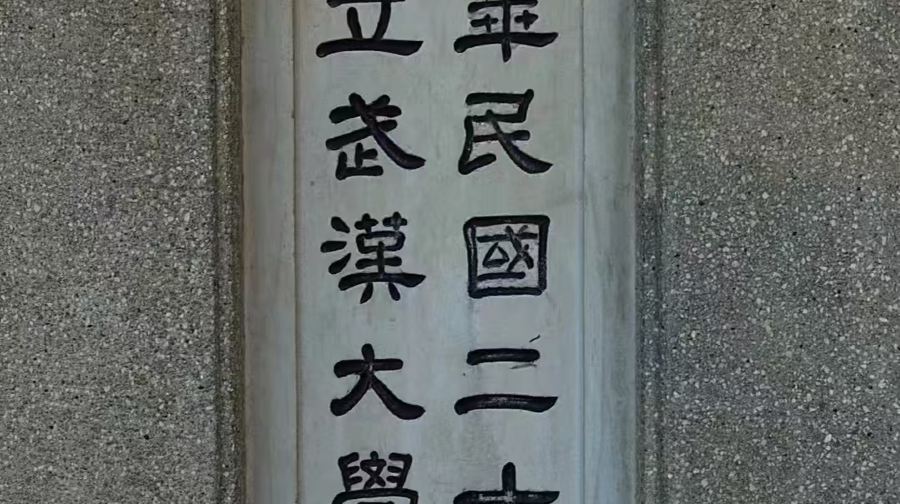 華民國二十
立武漢大學